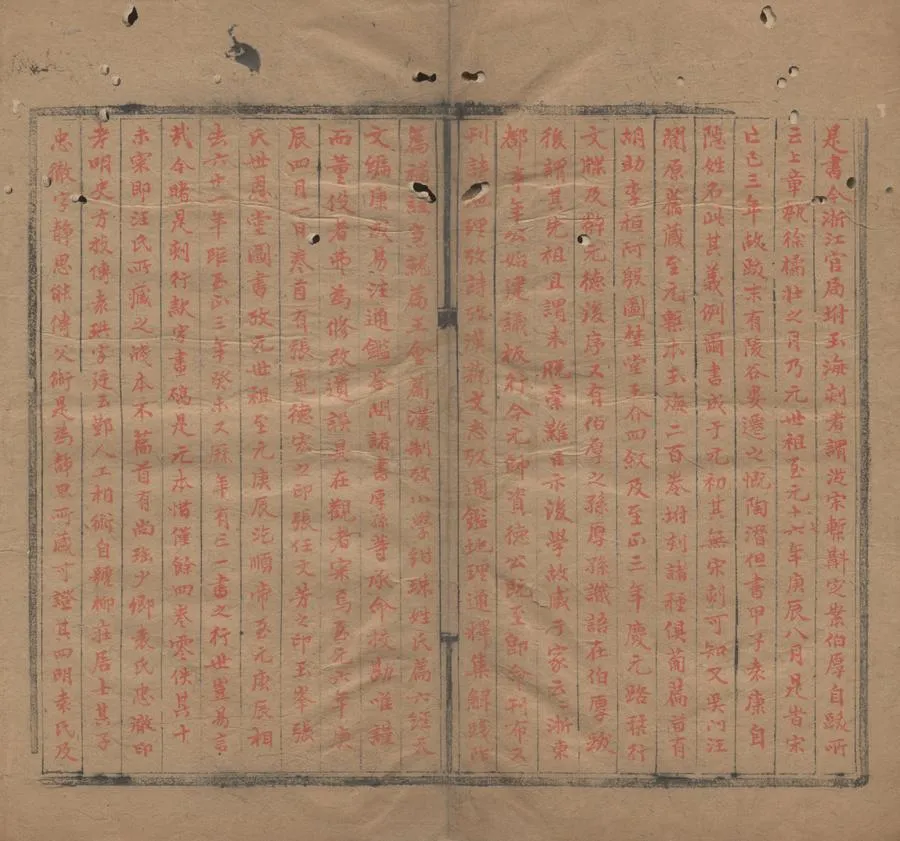 是書今浙江官局坿玉海刻者謂汲宋槧斠定業伯厚自跋所
云上章執徐橘壯之月乃元世祖至元十六年庚辰八月是豈宋
亡已三年故跋末有陵谷奧遷之慨陶潛但書甲子袁康自
隱姓名此其義例爾書成于元初其無宋刻可知又吳門汪
閬原舊藏至元槧本玉海二百卷坿刻諸種俱葡篇首有
胡助李桓阿殷圖埜堂王介四敘及至正三年慶元路稡行
文牒及薛元德後序又有伯厚之孫厚孫識語在伯厚跋
後謂其先祖且謂未脫稾難㠯示後學故臧于家云浙東
都事年公始建議板行今元帥資德公既至卽命刊布又
刊詩地理攷詩攷漢藝文志攷通鑑地理通釋集解踐阼
篇補注急就篇王會篇漢制攷小學紺珠姓氏篇六經天
文編康成易注通鑑答問諸書厚孫等承命挍勘唯謹
而董役者弗為修改遺誤具在觀者宋焉至元六年庚
辰四月一日卷首有張寬德宏之印張任文芳之印玉峯張
氏世恩堂圖書攷元世祖至元庚辰沇順帝至元庚辰相
去六十一年距至正三年癸未又厤年有三一書之行世豈易言
哉今睹是刻行款字畫碻是元本惜僅餘四卷零佚其十
未案卽汪氏所臧之殘本不篇首有尚珤少卿袁氏忠徹印
考明史方技傳袁珙字廷玉鄞人工相術自號柳莊居士其子
忠徹字靜思能傳父術是為靜思所臧可證其四明袁氏及